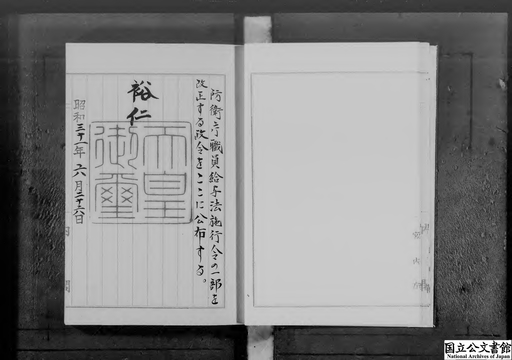 防衛庁職員給与法施行令の一部を
改正する政令をここに公布する。
裕仁
天皇御璽
昭和三十一年六月二十六日
国立公文書館
National Archives of Japan